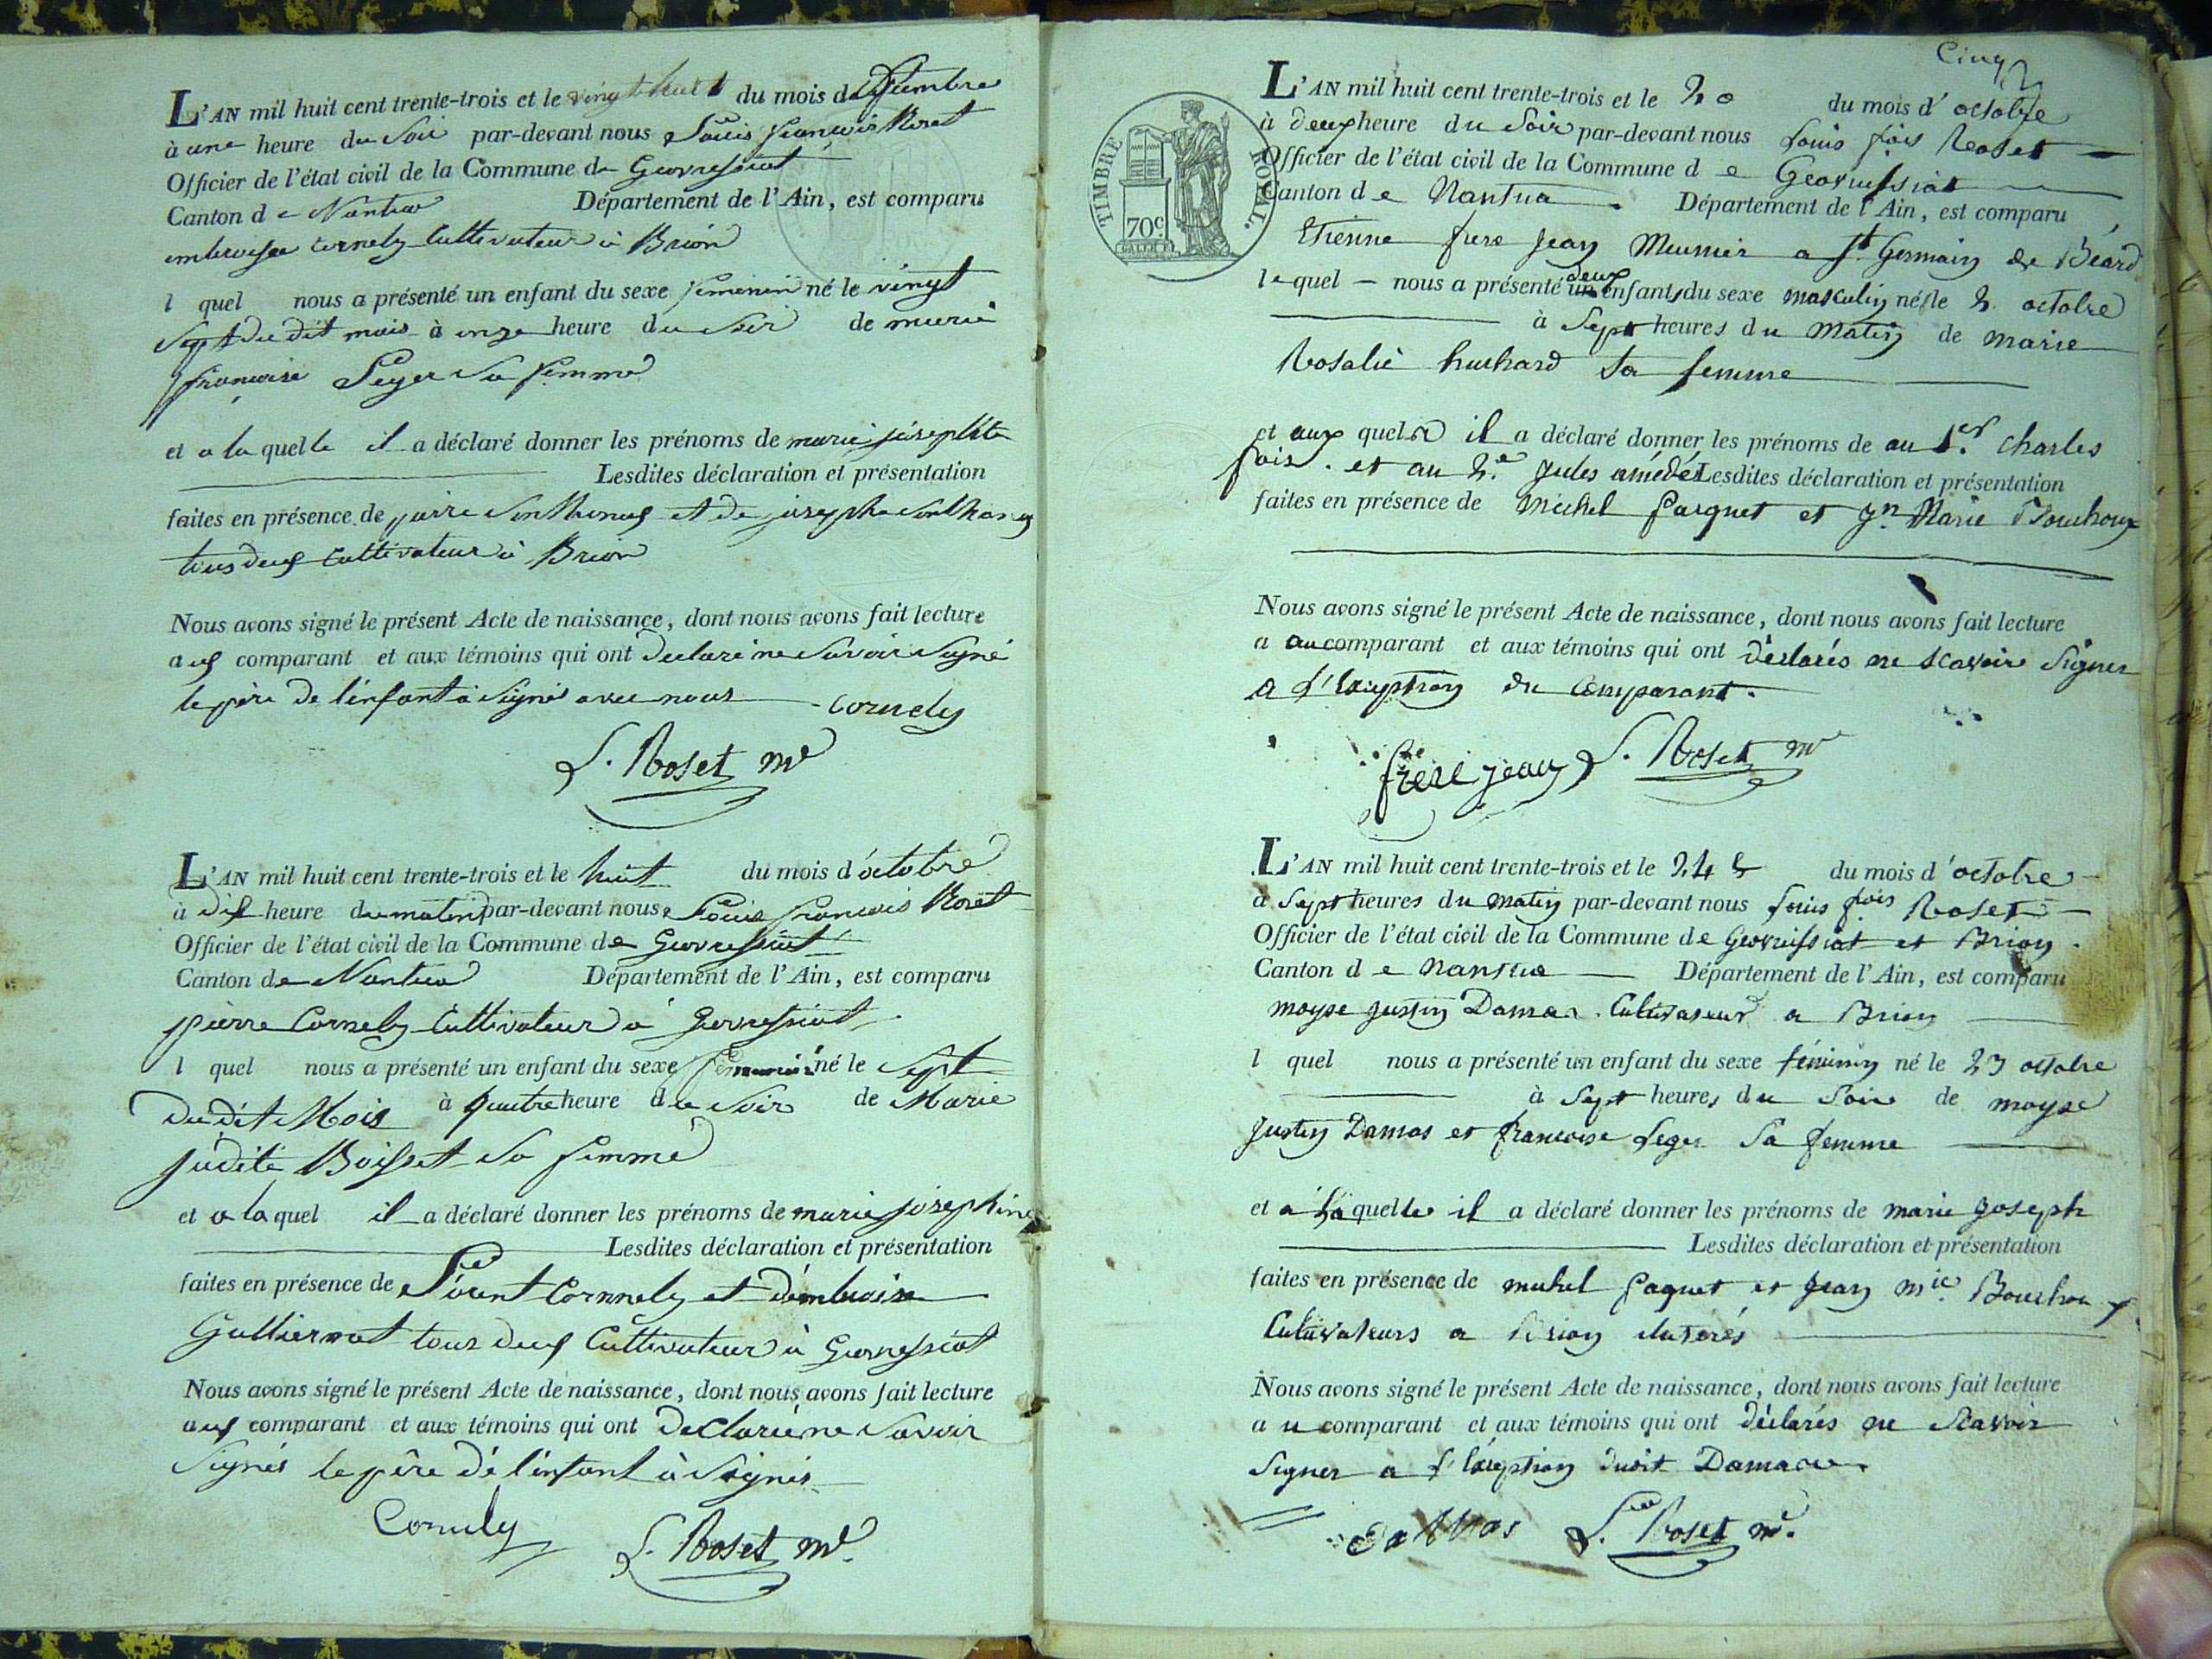 L'AN mil huit cent trente-trois et le vingt huit du mois de septembre
à une heure du Soir par-devant nous Louis françois Roset
Officier de l'état civil de la Commune de Geovressiat
Canton de Nantua Département de l'Ain, est comparu
ambroise Cornely Cultivateur à Brion
l quel nous a présenté un enfant du sexe feminin né le vingt
Sept du dit mois à onze heure du Soir de marie
françoise Leger Sa femme
et a la quelle il a déclaré donner les prénoms de marie josephte
Lesdites déclaration et présentation
faites en présence de pierre Santhonas et de josephe Santhonas
tous deux Cultivateur à Brion
Nous avons signé le présent Acte de naissance, dont nous avons fait lecture
aux comparant et aux témoins qui ont Declaré ne Savoir Signé
le père de l'enfant à Signé avec nous Cornely
L. Roset me
L'AN mil huit cent trente-trois et le huit du mois d'octobre
à dix heure du matin par-devant nous Louis françois Roset
Officier de l'état civil de la Commune de Geovressiat
Canton de Nantua Département de l'Ain, est comparu
pierre Cornely Cultivateur à Geovressiat
l quel nous a présenté un enfant du sexe feminin né le Sept
Du dit Mois à quatre heure du Soir de Marie
judite Boisset Sa femme
et a la quel il a déclaré donner les prénoms de marie josephine
Lesdites déclaration et présentation
faites en présence de Cornnely et d'embroise
Gulliermot tous deux Cultivateur à Geovressiat
Nous avons signé le présent Acte de naissance, dont nous avons fait lecture
aux comparant et aux témoins qui ont Declaré ne Savoir
Signés le père de l'enfant à Signés
Cornely L. Roset me
Cinq
TIMBRE ROYAL
70c
L'AN mil huit cent trente-trois et le 20 du mois d'octobre
à deux heure du Soir par-devant nous Louis fçois Roset
Officier de l'état civil de la Commune de Geovressiat
Canton de Nantua Département de l'Ain, est comparu
Etienne frere Jean Meunier a St Germain de Béard
lequel nous a présenté un deux enfants du sexe masculin nés le 2. octobre
à Sept heures du Matin de marie
Rosalie huchard Sa femme
et aux quels il a déclaré donner les prénoms de au 1er. Charles
fçois. et au 2e. Jules amédé Lesdites déclaration et présentation
faites en présence de Michel Paquet et Jn Marie Bouchoux
Nous avons signé le présent Acte de naissance, dont nous avons fait lecture
a au comparant et aux témoins qui ont déclarés ne scavoire Signer
a l'Exception du Comparant.
frere jean L. Roset me
L'AN mil huit cent trente-trois et le 24 du mois d'octobre
à Sept heures du matin par-devant nous Louis fçois Roset
Officier de l'état civil de la Commune de Geovressiat et Brion.
Canton de Nantua Département de l'Ain, est comparu
moyse justin Damas. Cultivateur a Brion
l quel nous a présenté un enfant du sexe féminin né le 23 octobre
à Sept heures du Soir de moyse
Justin Damas et francoise Leger Sa femme
et a la quelle il a déclaré donner les prénoms de marie Joseph
Lesdites déclaration et présentation
faites en présence de michel Paquet et Jean mie Bouchoux
Cultivateurs a Brion
Nous avons signé le présent Acte de naissance, dont nous avons fait lecture
au comparant et aux témoins qui ont déclarés ne Scavoir
Signer a l'Exception dudit Damas.
damas L. Roset me.